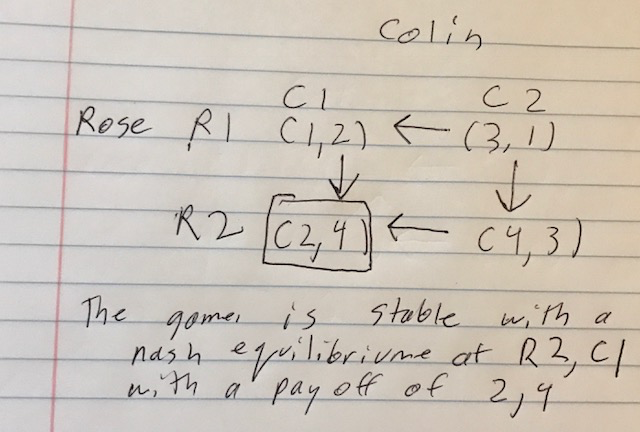 Colin
C1 C2
Rose R1 (1,2) ← (3,1)
↓ ↓
R2 (2,4) ← (4,3)
The game, is stable with a
nash equilibriume at R2, C1
with a payoff of 2,4